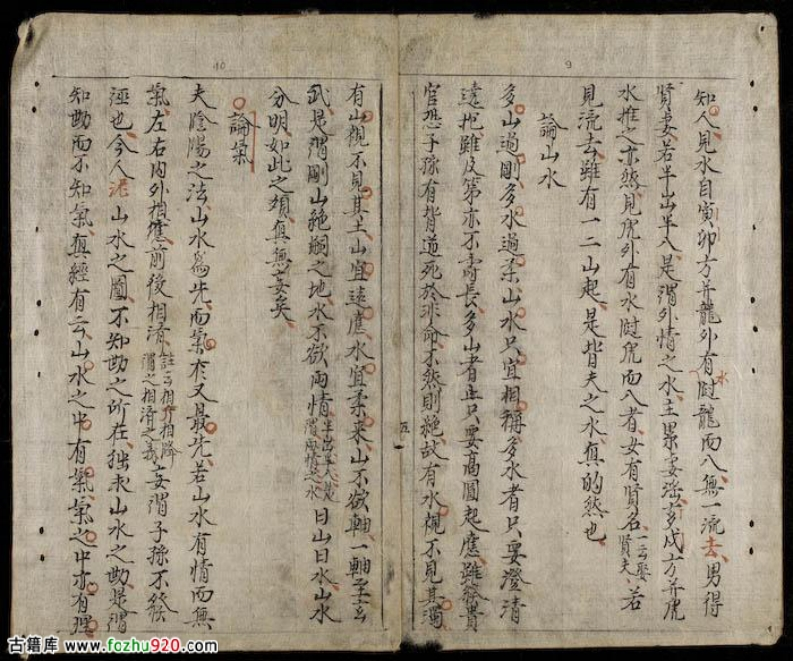 9
知人見水自寅卯方并龍外有水隨龍而入無一流去男得
賢妻若半出半入是謂外情之水主眾妻瑤方戍方并虎
水推之亦然見虎外有水隨虎而入者女有賢名一云娶賢夫若
見流去雖有一二山起是皆夫之水真的然也
論山水
多山過剛多水過柔山水只宜相稱多水者只要澄清
遠抱雖及第亦不壽長多山者止只要高圓起應雖發貴
官恐子孫有背逆死於非命不然則絕故有水視不見其濁
五
10
有山觀不見其土山宜遠應水宜柔來山不欲軸一軸子玄
武是謂剛山絕嗣之地水不欲兩情半出半入是謂兩情之水曰山曰水山水
分明如此之類真無妄矣
論氣
夫陰陽之法山水為先而氣有又最先若山水有情而無
氣左右內外相應前後相濟註云相升相降謂之相濟之義妄謂子孫不發
福也今人泥山水之圖不知勘之所在拙求山水之勘是謂
知勘而不知氣真經有云山水之中有氣氣之中亦有理
古籍库 www.fozhu920.com